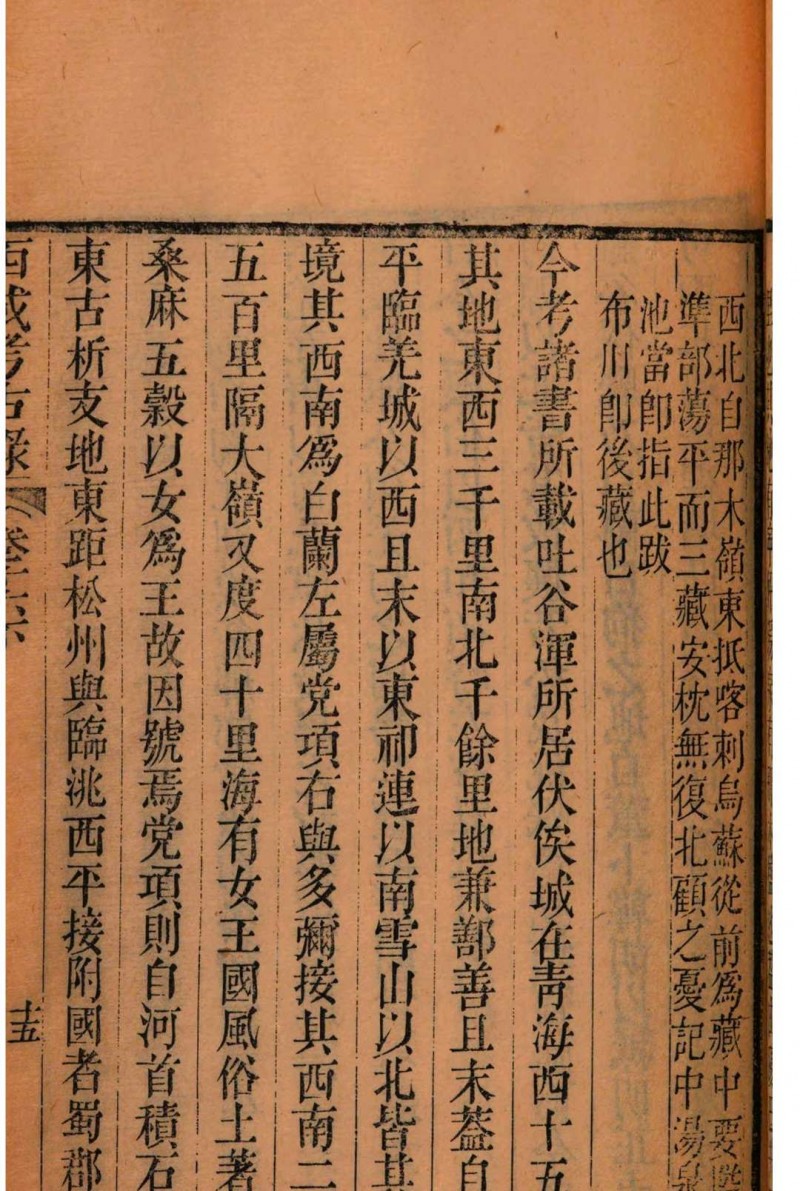 西北自那木嶺東抵喀刺烏蘇從前爲藏中要
準部蕩平而三藏安枕無復北顧之憂記中湯泉
池當卽指此跋
布川卽後藏也
今考諸書所載吐谷渾所居伏俟城在青海西十五
其地東西三千里南北千餘里地兼鄯善且末葢自
平臨羌城以西且末以東祁連以南雪山以北皆其
境其西南爲白蘭左屬党項右與多彌接其西南二
五百里隔大嶺又度四十里海有女王國風俗土著
桑麻五穀以女爲王故因號焉党項則自河首積石
東古析支地東距松州與臨洮西平接附國者蜀郡
西域考古錄 卷十六 十五